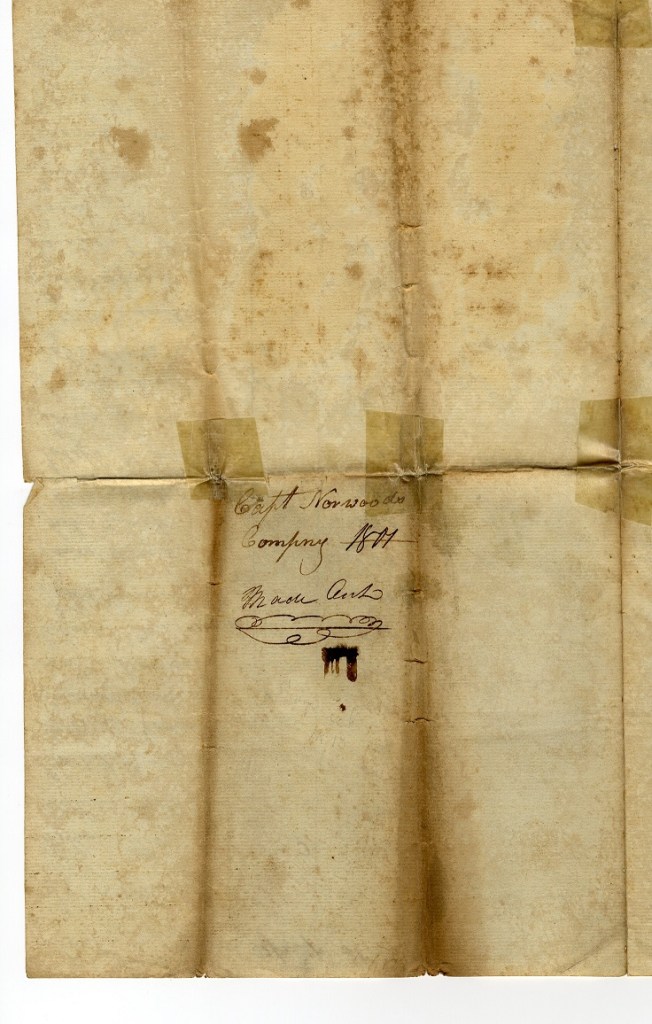 Capt Norwoods
Compny 1801
Made Out